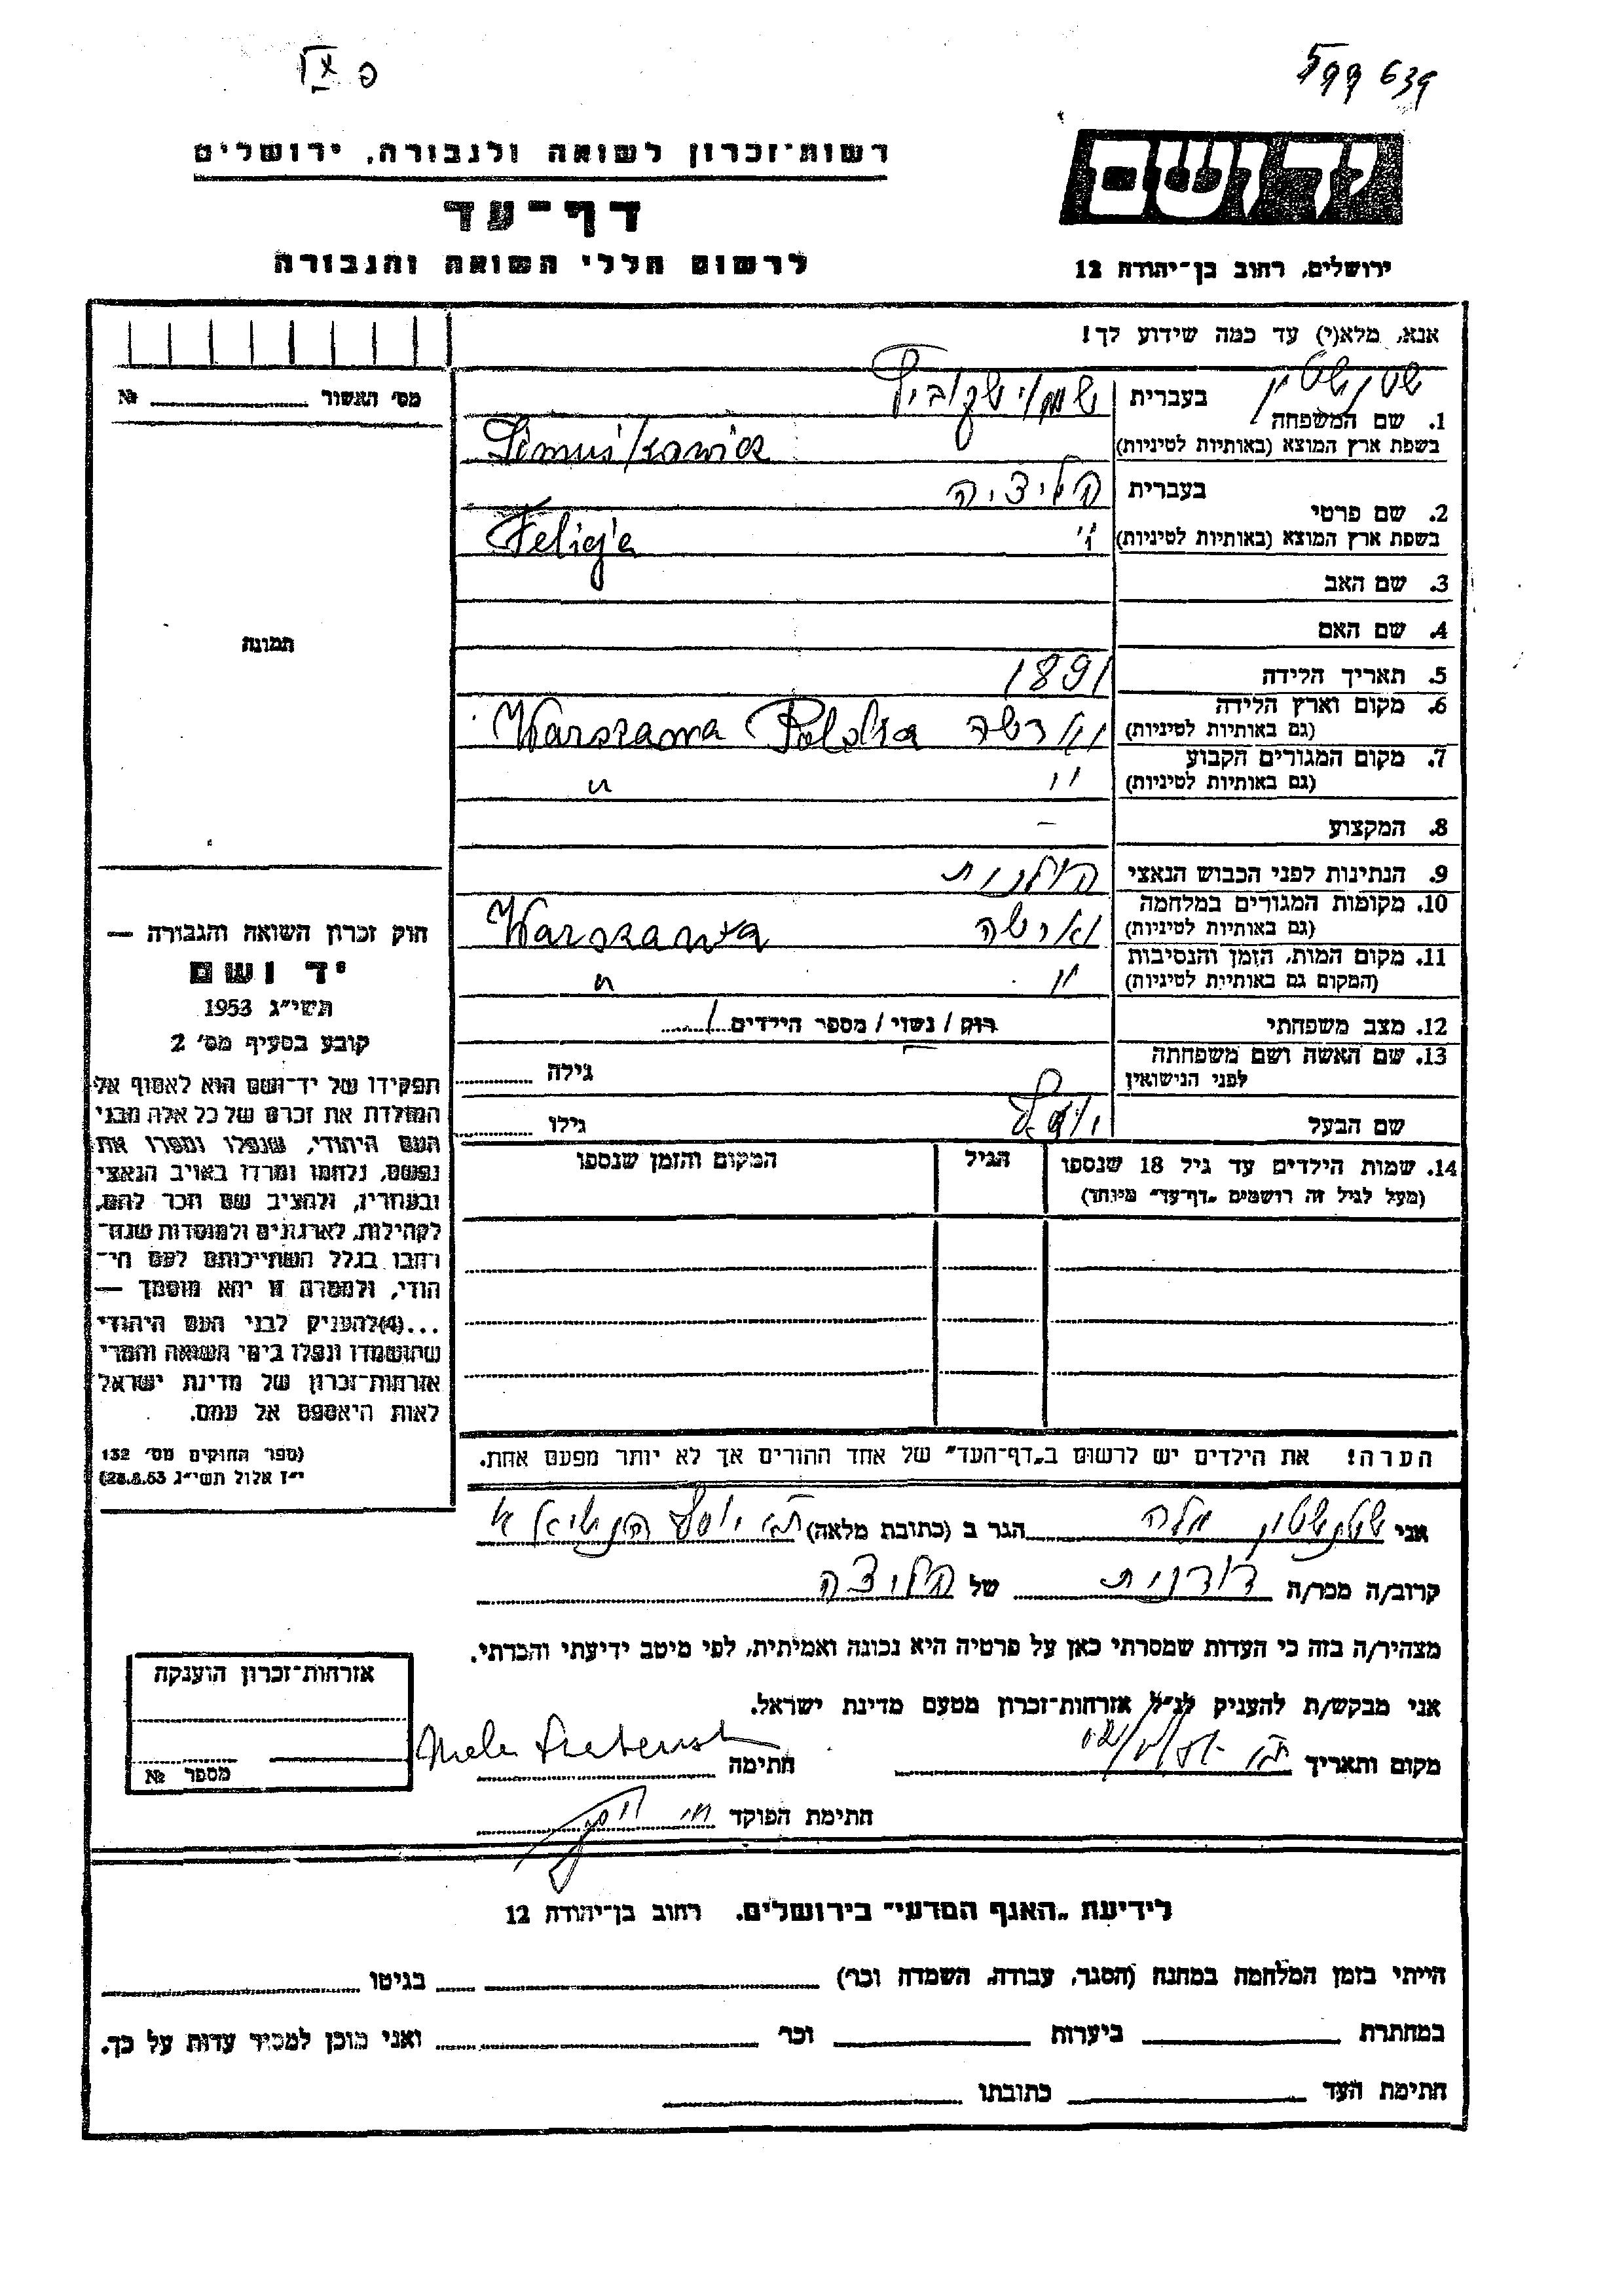 פ IX
599 639
רשות־זכרון לשואה ולגבורה, ירושלים
יד ושם
דף־עד
לרשום חללי השואה והגבורה
ירושלים, רחוב בן־יהודה 12
אנא, מלא(י) עד כמה שידוע לך!
מס׳ האשור № ________
1. שם המשפחה בעברית
בשפת ארץ המוצא (באותיות לטיניות)
2. שם פרטי בעברית פליציה
בשפת ארץ המוצא (באותיות לטיניות) Felicja
3. שם האב
4. שם האם
תמונה
5. תאריך הלידה 1891
6. מקום וארץ הלידה ורשה Warszawa Polska
(גם באותיות לטיניות)
7. מקום המגורים הקבוע " "
(גם באותיות לטיניות)
8. המקצוע –
9. הנתינות לפני הכבוש הנאצי פולנית
10. מקומות המגורים במלחמה ורשה Warszawa
(גם באותיות לטיניות)
11. מקום המות, הזמן והנסיבות " "
(המקום גם באותיות לטיניות)
12. מצב משפחתי רוק / נשוי / מספר הילדים 1
13. שם האשה ושם משפחתה גילה
לפני הנישואין
שם הבעל יוסף גילו
14. שמות הילדים עד גיל 18 שנספו הגיל המקום והזמן שנספו
(מעל לגיל זה רושמים „דף־עד״ מיוחד)
חוק זכרון השואה והגבורה —
יד ושם
תשי״ג 1953
קובע בסעיף מס׳ 2
תפקידו של יד־ושם הוא לאסוף אל
המולדת את זכרם של כל אלה מבני
העם היהודי, שנפלו ומסרו את
נפשם, נלחמו ומרדו באויב הנאצי
ובעוזריו, ולהציב שם וזכר להם,
לקהילות, לארגונים ולמוסדות שנח־
רבו בגלל השתייכותם לעם הי־
הודי, ולמטרה זו יהא מוסמך —
...(4)להעניק לבני העם היהודי
שהושמדו ונפלו בימי השואה והמרי
אזרחות־זכרון של מדינת ישראל
לאות היאספם אל עמם.
(ספר החוקים מס׳ 132
י״ז אלול תשי״ג 28.8.53)
הערה! את הילדים יש לרשום ב„דף־העד״ של אחד ההורים אך לא יותר מפעם אחת.
אני הגר ב (כתובת מלאה)
קרוב/ה מכר/ה דודנית של פליציה
מצהיר/ה בזה כי העדות שמסרתי כאן על פרטיה היא נכונה ואמיתית, לפי מיטב ידיעתי והכרתי.
אני מבקש/ת להעניק לנ״ל אזרחות־זכרון מטעם מדינת ישראל.
מקום ותאריך חתימה
חתימת הפוקד
אזרחות־זכרון הוענקה
מספר №
לידיעת „האגף המדעי״ בירושלים, רחוב בן־יהודה 12
הייתי בזמן המלחמה במחנה (הסגר, עבודה, השמדה וכו׳) בגיטו
במחתרת ביערות וכו׳ ואני מוכן למסור עדות על כך.
חתימת העד כתובתו